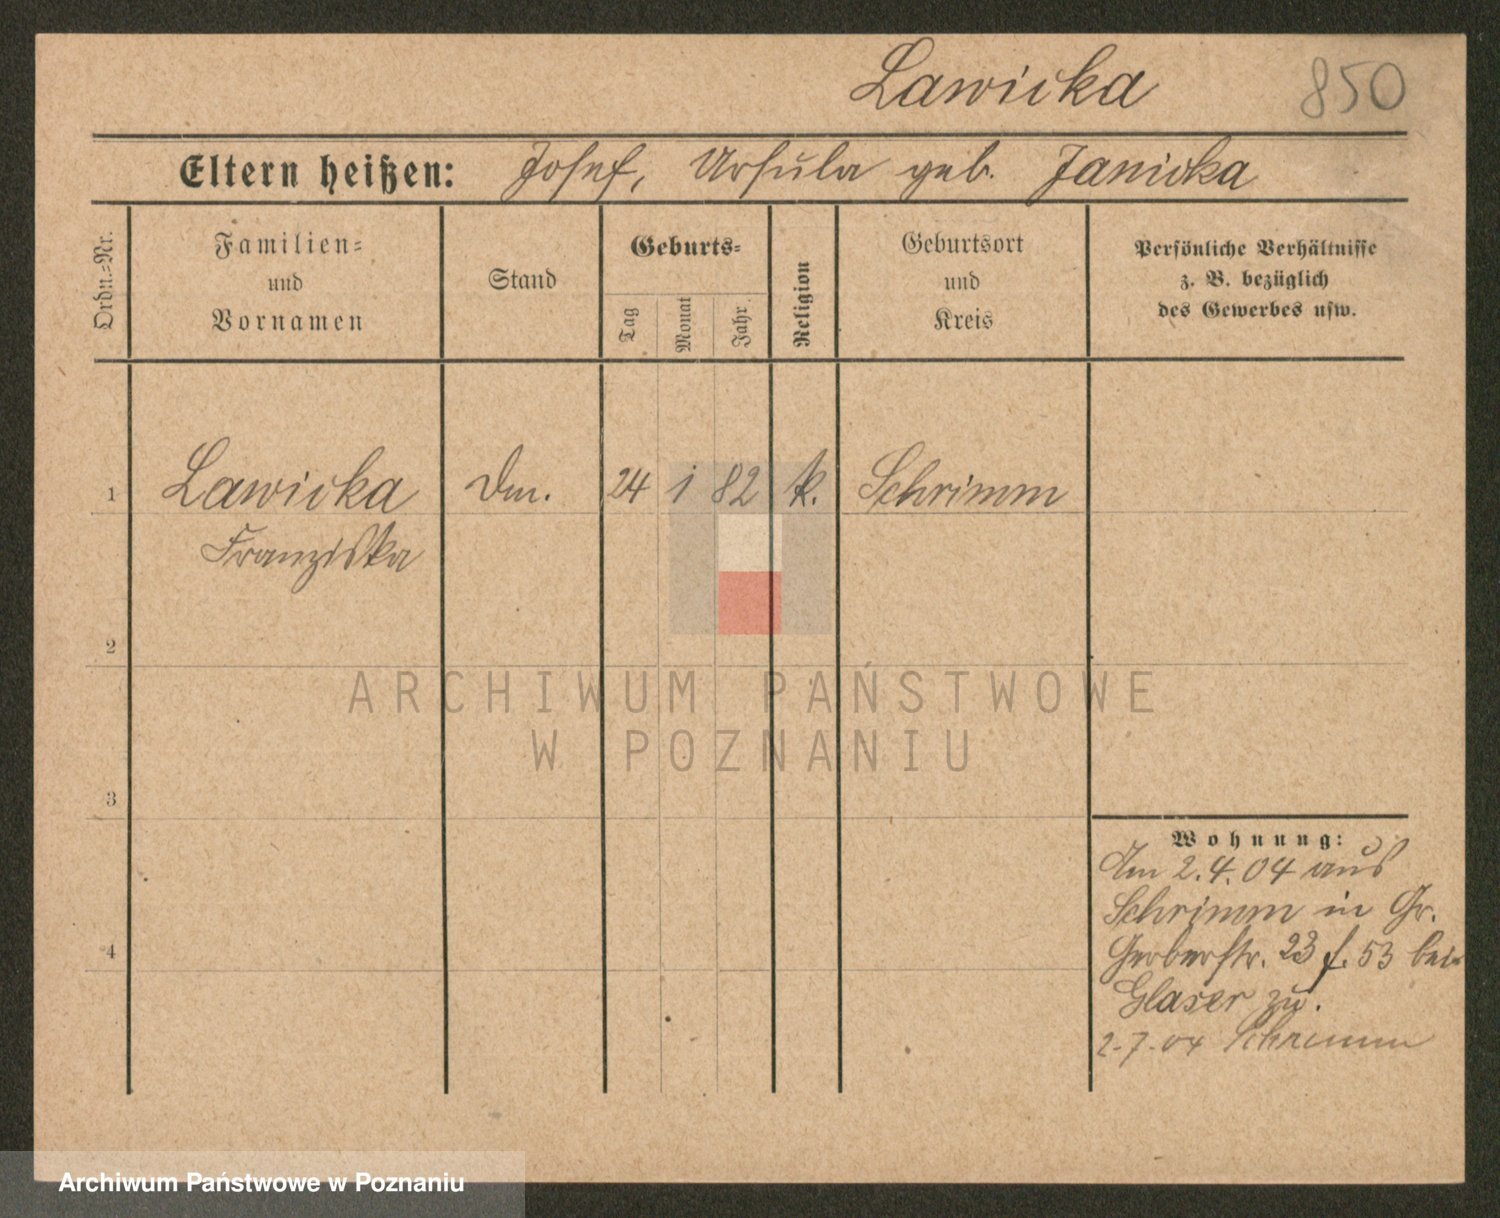 Lawicka 850
Eltern heißen: Josef, Ursula geb. Janicka
Ordn.=Nr.
Familien=
und
Vornamen
Stand
Geburts=
Tag
Monat
Jahr
Religion
Geburtsort
und
Kreis
Persönliche Verhältnisse
z. B. bezüglich
des Gewerbes usw.
1 Lawicka Dm. 24 1 82 k. Schrimm
Franziska
2
ARCHIWUM PAŃSTWOWE
W POZNANIU
3
Wohnung:
Am 2.4.04 aus
Schrimm in Gr.
4
Gerberstr. 23 f. 53 bei
Glaser zu.
2-7-04 Schrimm
Archiwum Państwowe w Poznaniu